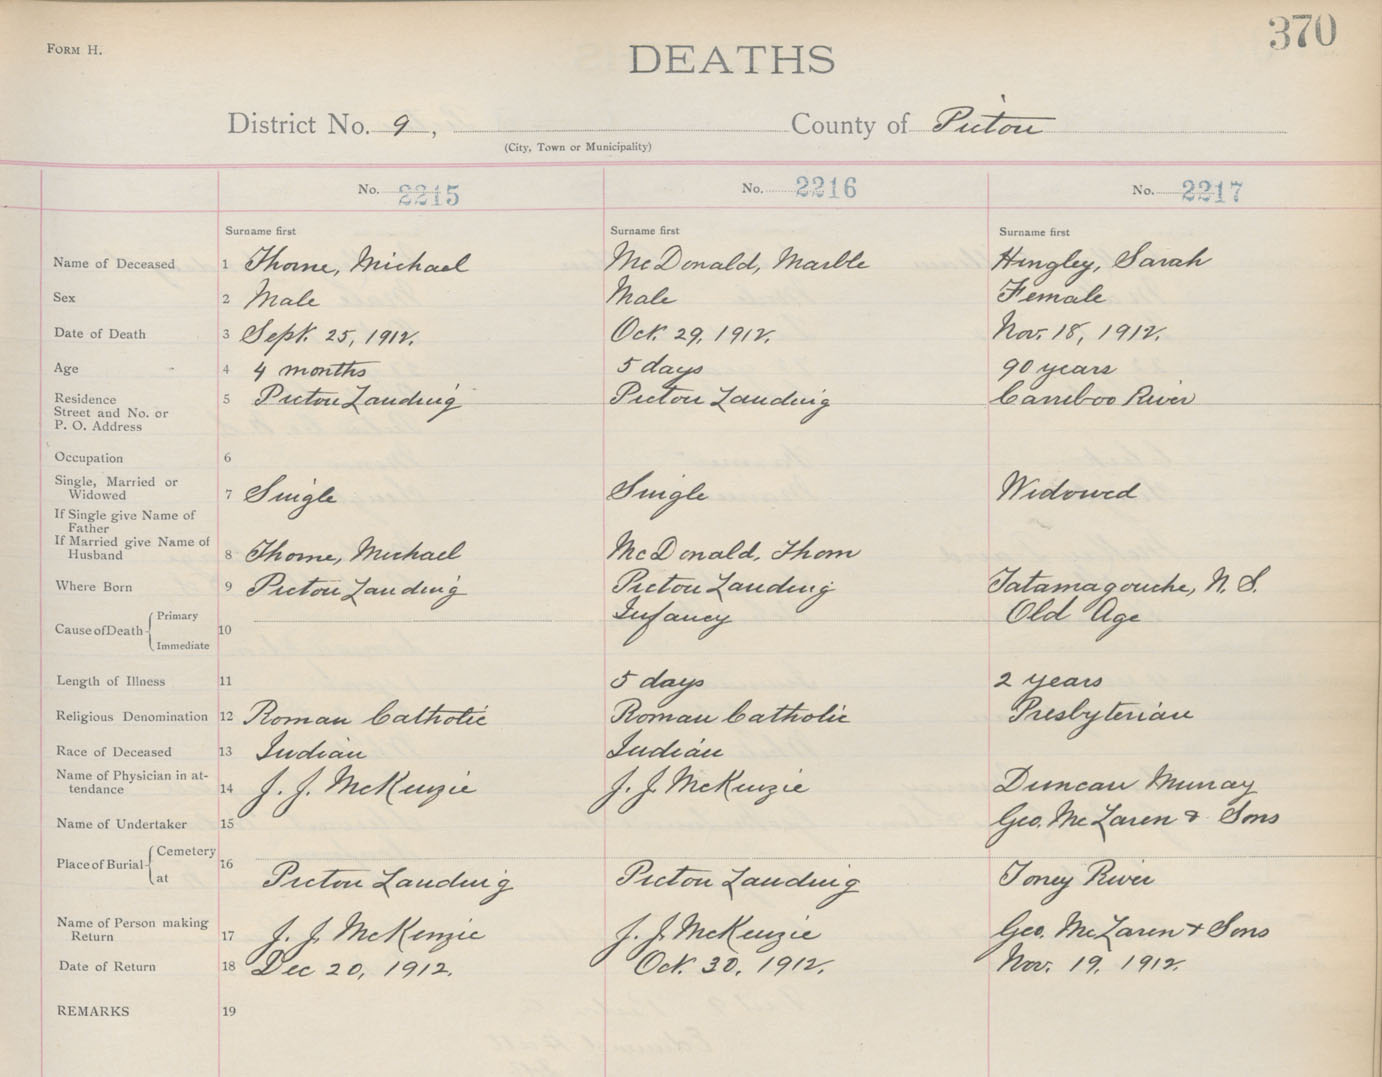 370
FORM H.
DEATHS
District No. 9, County of Pictou
(City, Town or Municipality)
No. 2215 No. 2216 No. 2217
Surname first Surname first Surname first
Name of Deceased 1 Thorne, Michael McDonald, Marble Hingley, Sarah
Sex 2 Male Male Female
Date of Death 3 Sept. 25, 1912. Oct. 29, 1912. Nov. 18, 1912.
Age 4 4 months 5 days 90 years
Residence 5 Pictou Landing Pictou Landing Carriboo River
Street and No. or
P. O. Address
Occupation 6
Single, Married or
Widowed 7 Single Single Widowed
If Single give Name of
Father
If Married give Name of
Husband 8 Thorne, Michael McDonald, Thom
Where Born 9 Pictou Landing Pictou Landing Tatamagouche, N. S.
Cause of Death Primary 10 Infancy Old Age
Immediate
Length of Illness 11 5 days 2 years
Religious Denomination 12 Roman Catholic Roman Catholic Presbyterian
Race of Deceased 13 Indian Indian
Name of Physician in at-
tendance 14 J. J. McKenzie J. J. McKenzie Duncan Murray
Name of Undertaker 15 Geo. McLaren & Sons
Place of Burial Cemetery 16
at Pictou Landing Pictou Landing Toney River
Name of Person making
Return 17 J. J. McKenzie J. J. McKenzie Geo. McLaren & Sons
Date of Return 18 Dec 20, 1912. Oct. 30, 1912. Nov. 19, 1912.
REMARKS 19